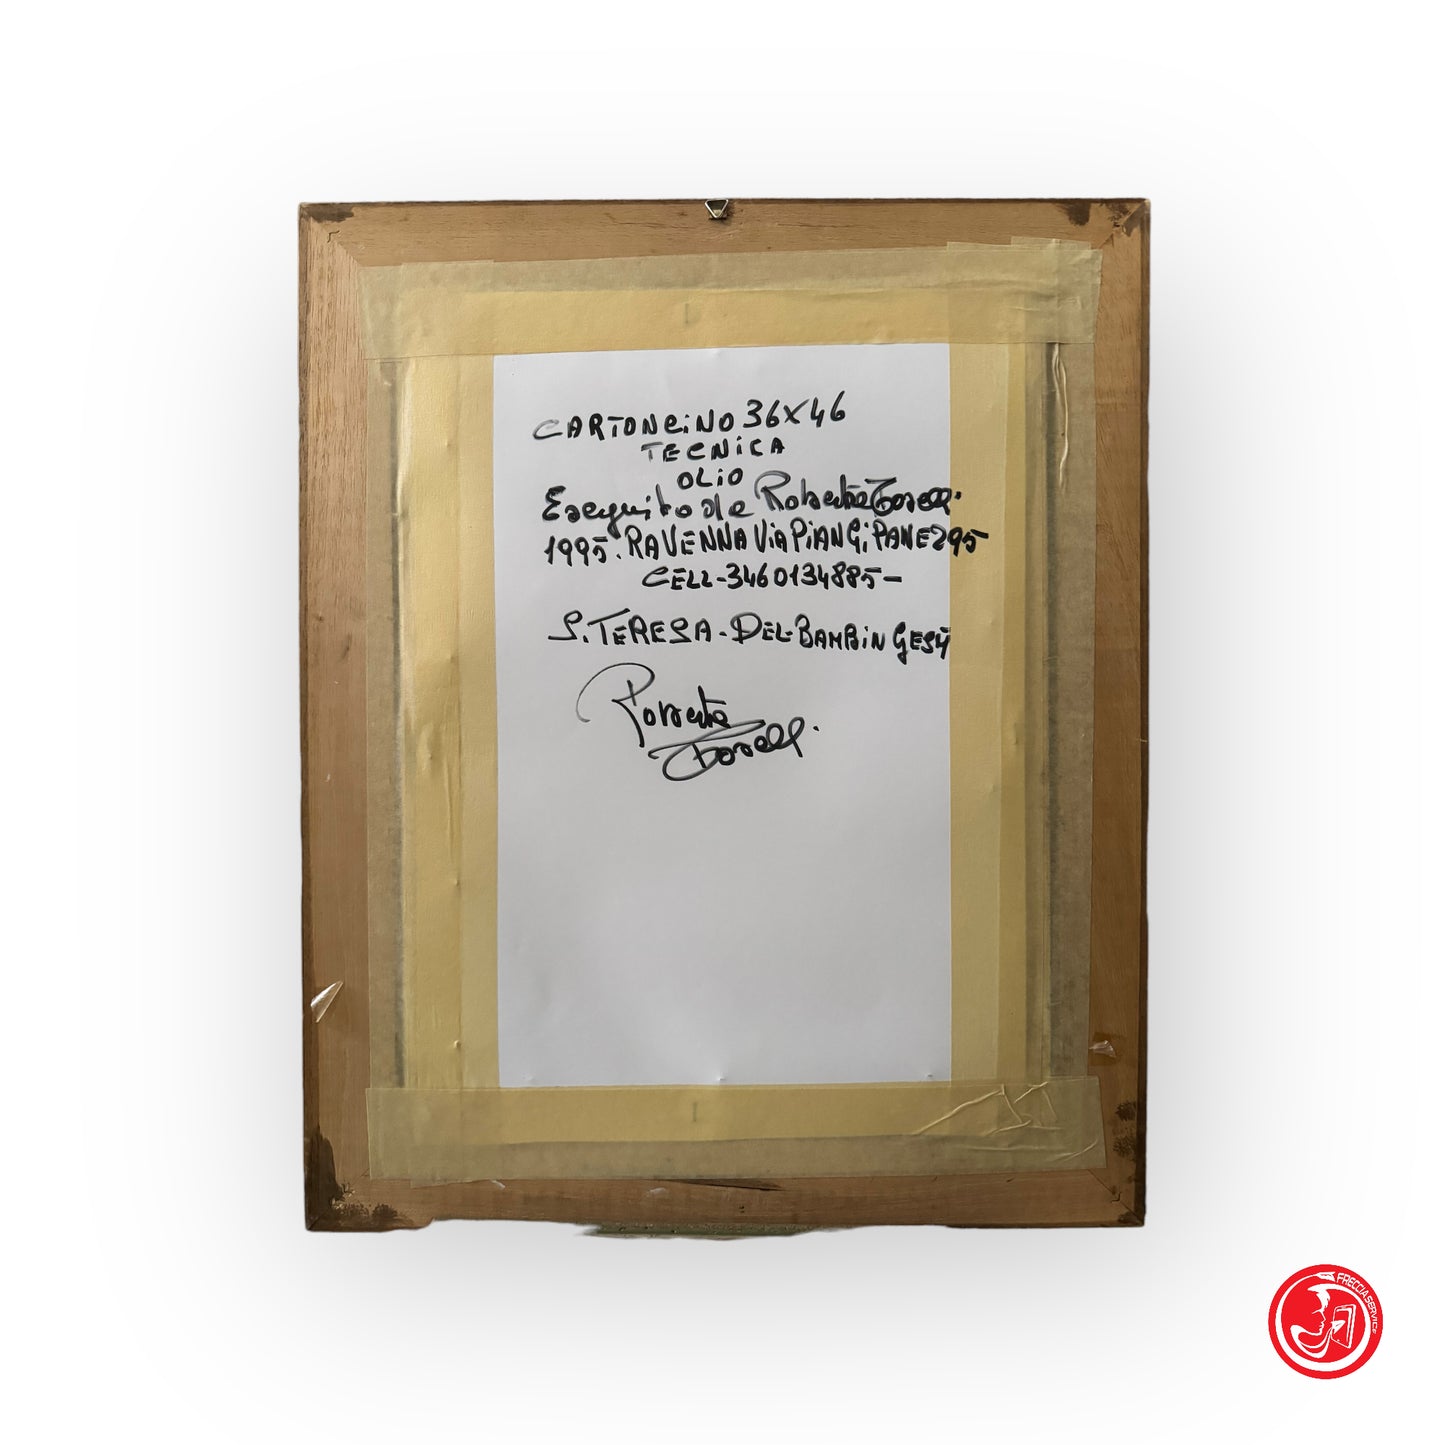 CARTONCINO 36X46
TECNICA
OLIO
Eseguito da Roberta Boselli.
1995. RAVENNA ViA PiANGiPANE 295
CELL-3460134885-
S. TERESA-DEL-BAMBiN GESÙ
Roberta
FRECCIA SERVICE